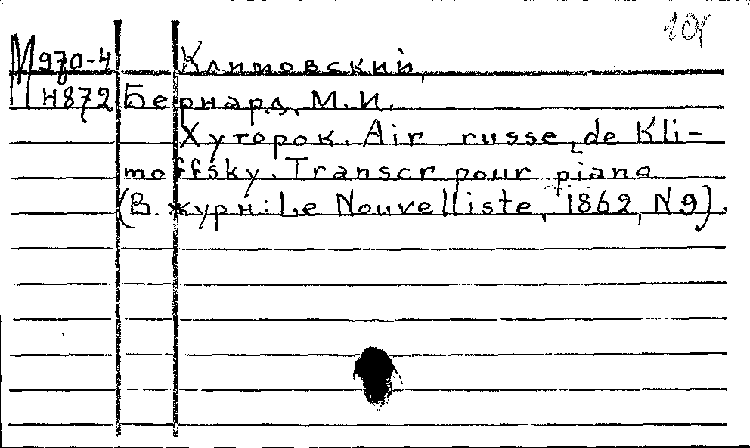 101
М 970-4 Климовский,
Н872 Бернард, М.И.
Хуторок. Air russe, de Kli-
moffsky. Transcr pour piano
(В журн: Le Nouvelliste, 1862, N9).